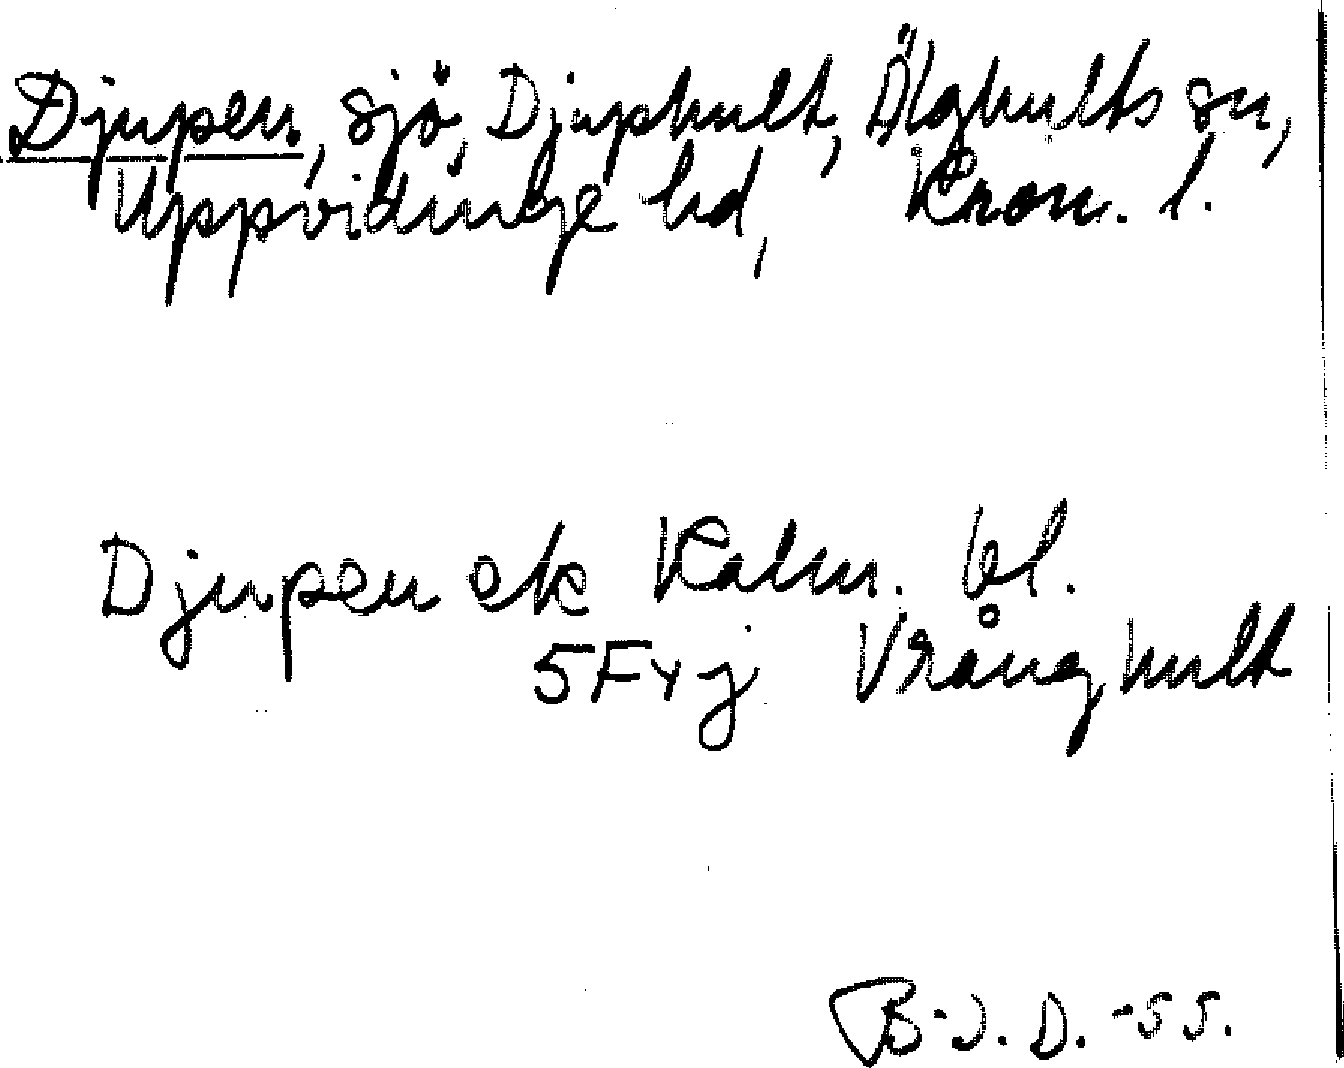 Djupen, sjö, Djuphult, Älghults sn,
Uppvidinge hd, Kron. l.
Djupen ek Kalm. bl.
5F4j Vrånghult
B-J. D. -55.